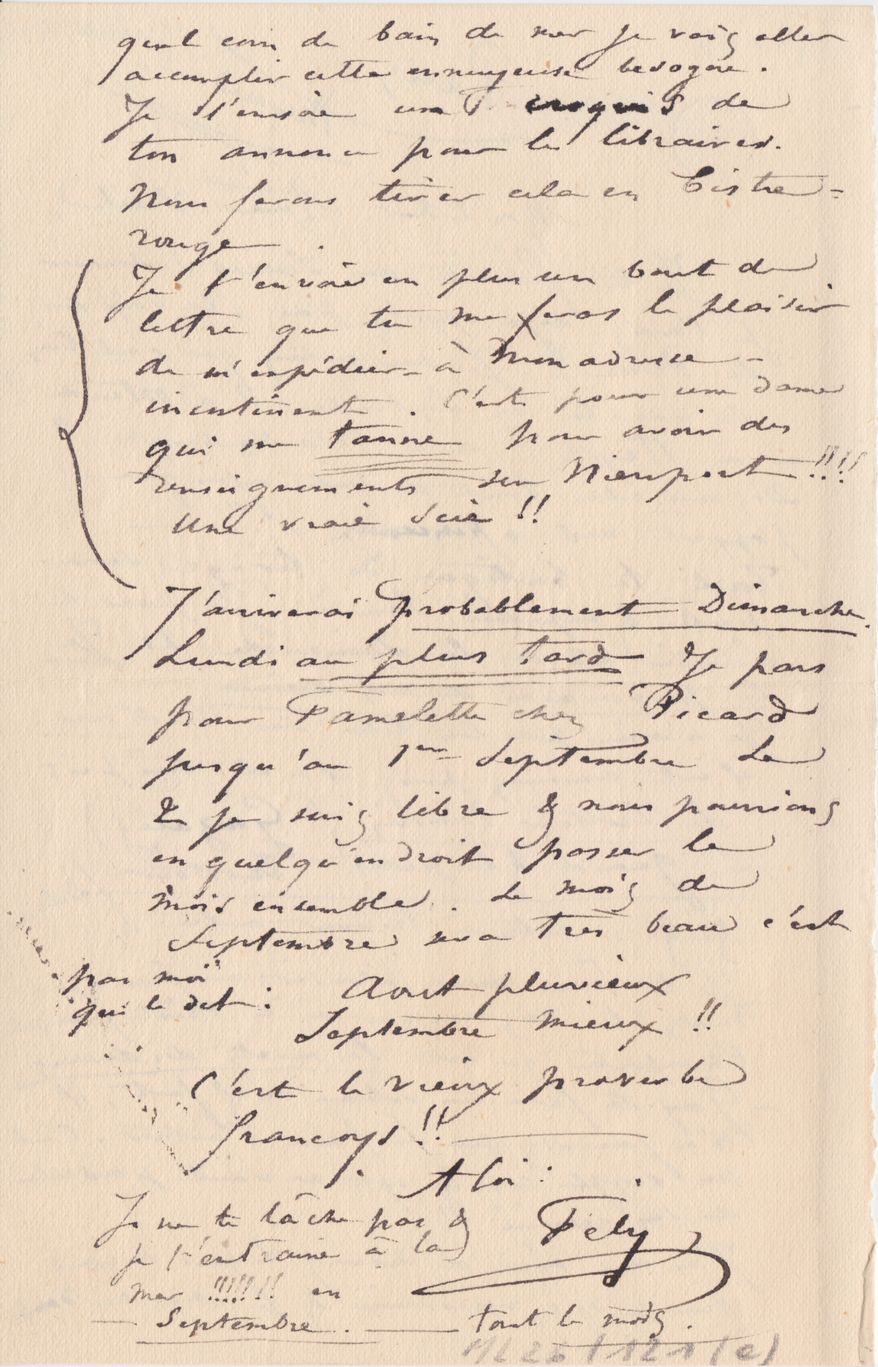 quel coin de bain de mer je vais aller
accomplir cette ennuyeuse besogne.
Je t'envoie un croquis de
ton annonce pour les libraires.
Nous ferons tirer cela en bistre-
rouge.
Je t'envoie en plus un bout de
lettre que tu me feras le plaisir
de m'expédier à mon adresse -
incontinent. C'est pour une dame
qui me tanne pour avoir des
renseignements sur Nieuport !!!!
Une vraie scie !!
J'arriverai probablement Dimanche.
Lundi au plus tard Je pars
pour Famelette chez Picard
jusqu'au 1er Septembre Le
2 je suis libre & nous pourrions
en quelqu'endroit passer le
mois ensemble. Le mois de
Septembre sera très beau c'est
pas moi
qui le dit :
Aout pluvieux
Septembre mieux !!
C'est le vieux proverbe
françoys !!
A toi :
Fély
Je ne te lâche pas &
je t'entraine à la
mer !!!!!!! en
Septembre. — tout le mois.